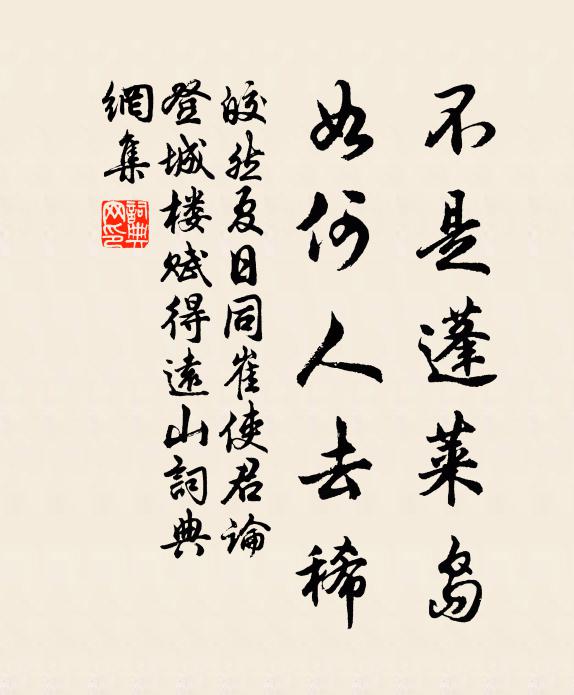 不是蓬莱島
如何人去稀
皎然夏日同崔使君論
登城楼赋得遠山詞典
網集
詞典網印